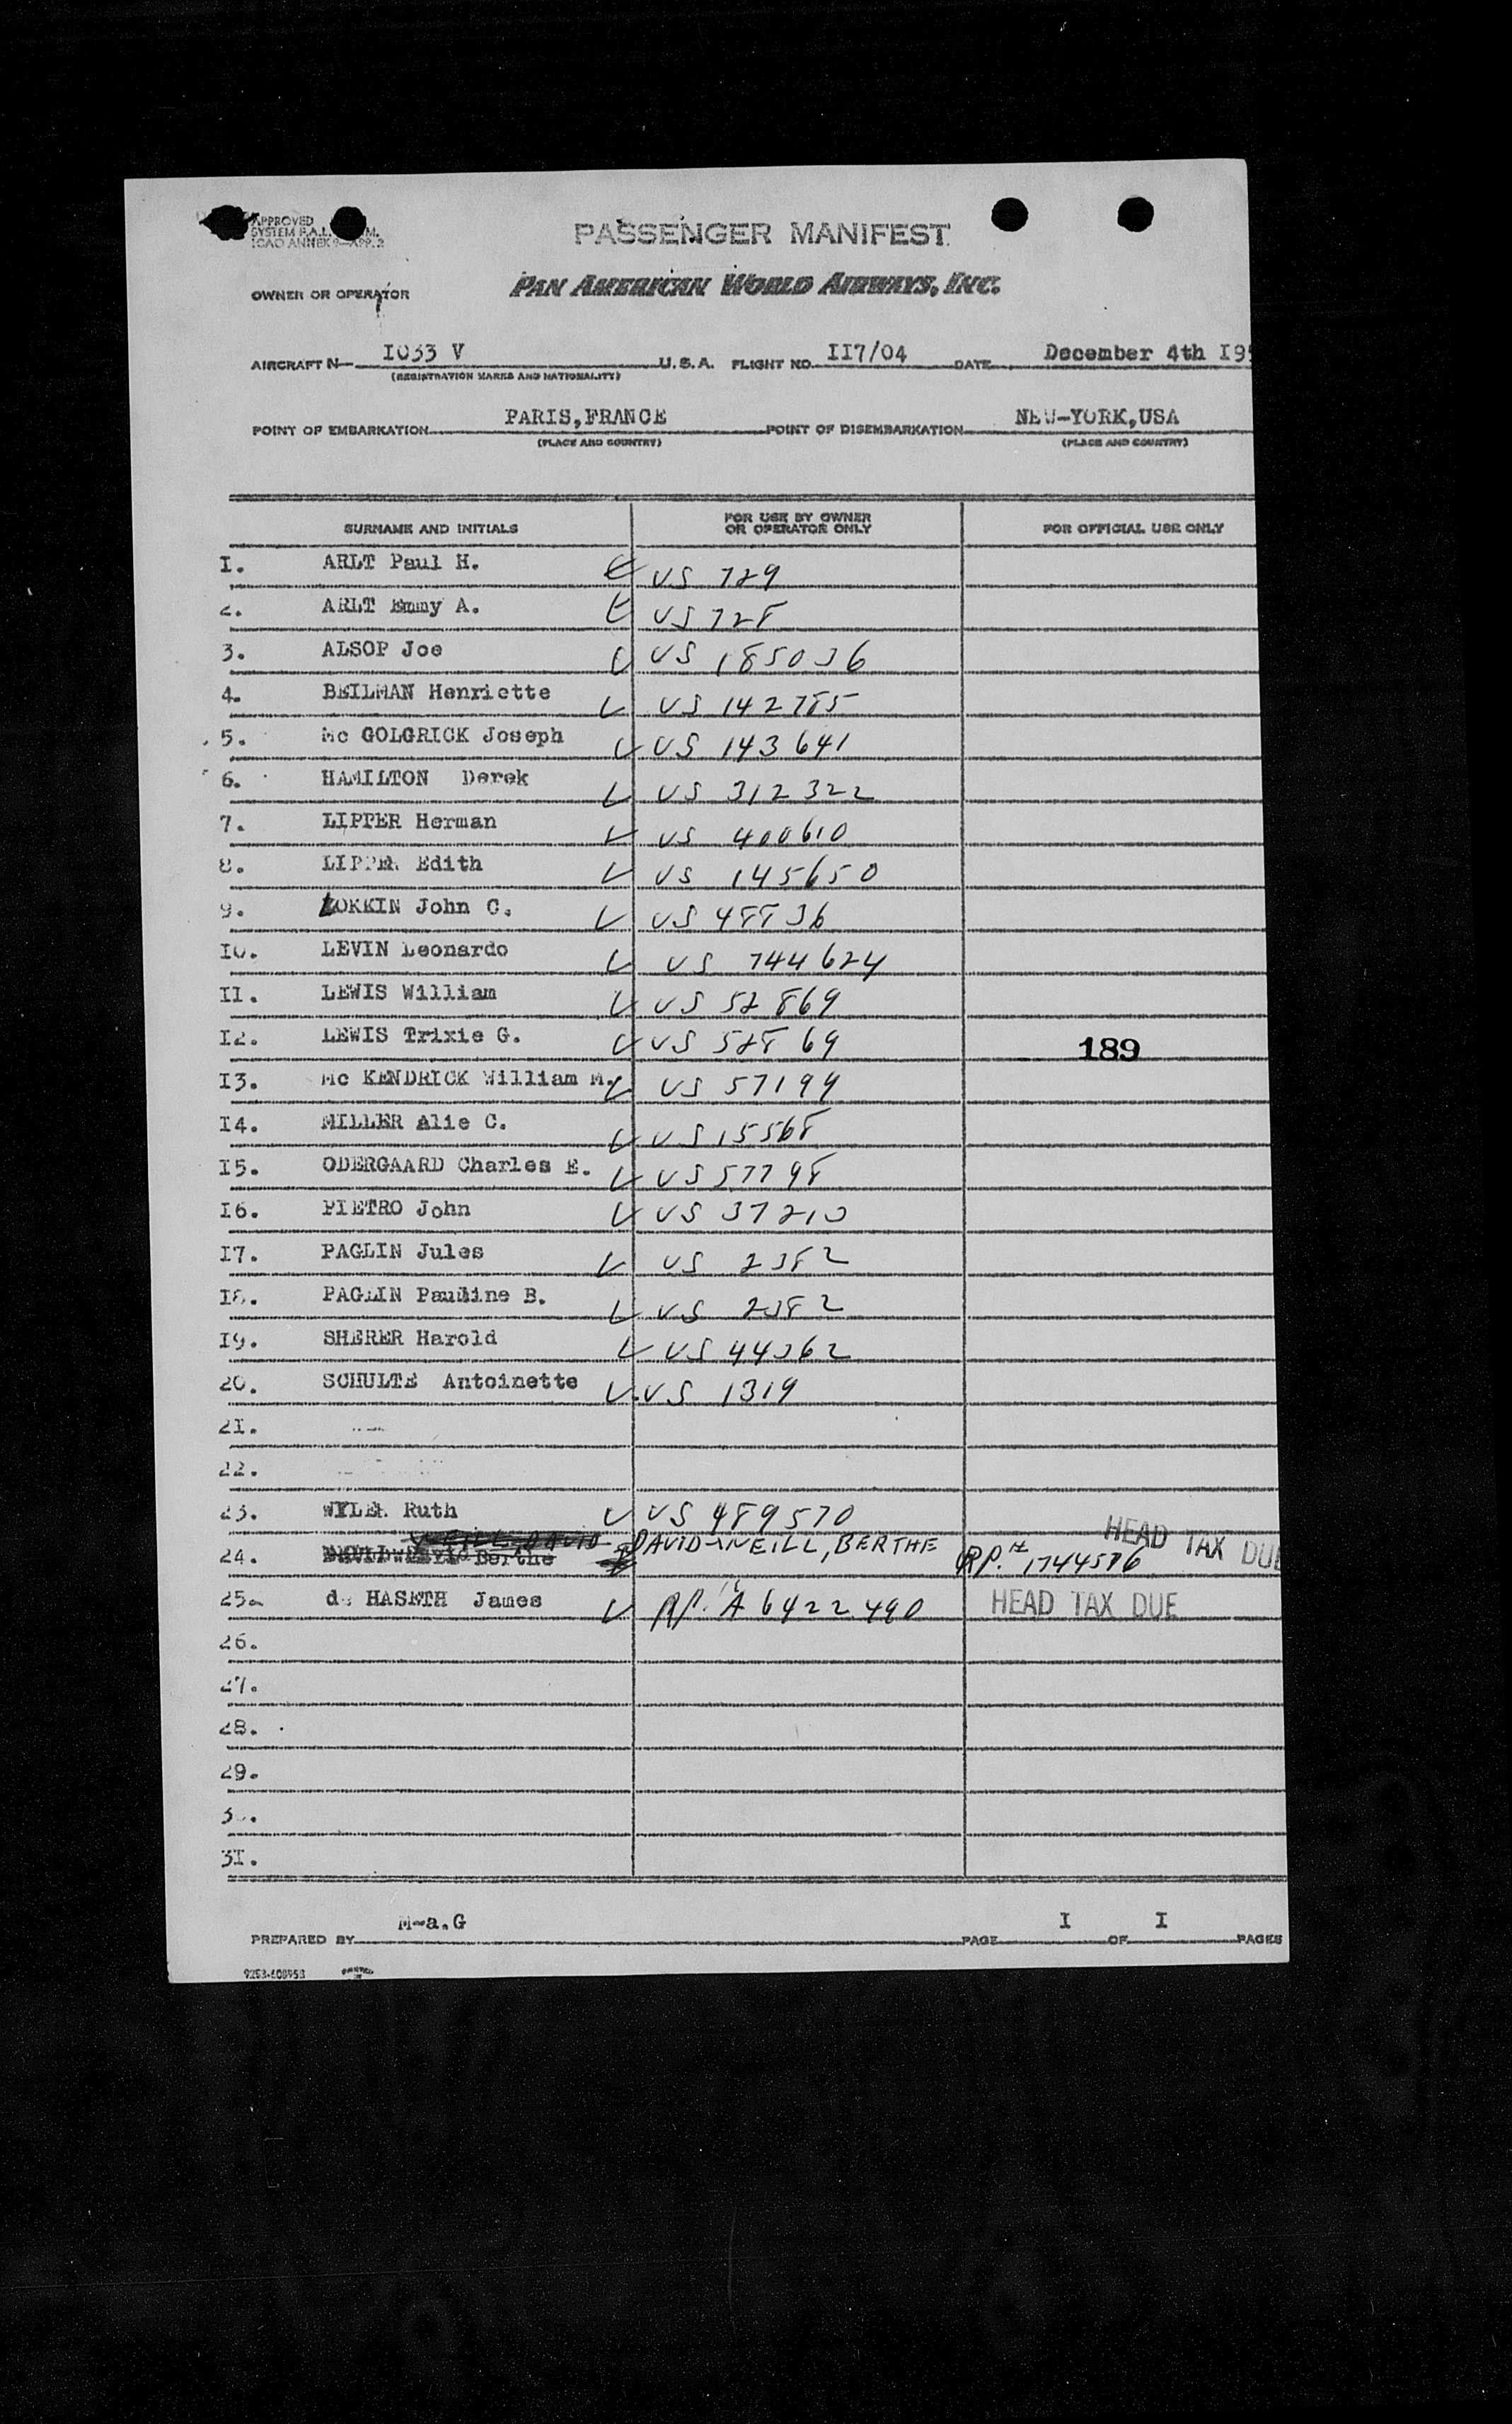 APPROVED
SYSTEM P.A.L. M.
ICAO ANNEX 9—APP. 2
PASSENGER MANIFEST
OWNER OR OPERATOR PAN AMERICAN WORLD AIRWAYS, INC.
AIRCRAFT N— I033 V U.S.A. FLIGHT NO. II7/04 DATE December 4th I95
(REGISTRATION MARKS AND NATIONALITY)
POINT OF EMBARKATION PARIS,FRANCE POINT OF DISEMBARKATION NEW-YORK,USA
(PLACE AND COUNTRY) (PLACE AND COUNTRY)
SURNAME AND INITIALS FOR USE BY OWNER OR OPERATOR ONLY FOR OFFICIAL USE ONLY
I. ARLT Paul H. US 729
2. ARLT Emmy A. US 728
3. ALSOP Joe US 185036
4. BEILMAN Henriette US 142785
5. Mc GOLGRICK Joseph US 143641
6. HAMILTON Derek US 312322
7. LIPPER Herman US 400610
8. LIPPER Edith US 145650
9. LOKKIN John C. US 48836
I0. LEVIN Leonardo US 744624
II. LEWIS William US 52869
I2. LEWIS Trixie G. US 52869 189
I3. Mc KENDRICK William M. US 57199
I4. MILLER Alie C. US 15568
I5. ODERGAARD Charles E. US 57798
I6. PIETRO John US 37213
I7. PAGLIN Jules US 2382
I8. PAGLIN Pauline B. US 2382
I9. SHERER Harold US 44362
20. SCHULTE Antoinette US 1319
2I.
22.
23. WYLER Ruth US 489570
24. Berthe DAVID-WEILL, BERTHE RP.# 1744576 HEAD TAX DUE
25. de HASETH James RP. A 6422490 HEAD TAX DUE
26.
27.
28.
29.
3 .
3I.
PREPARED BY M-a.G PAGE I OF I PAGES